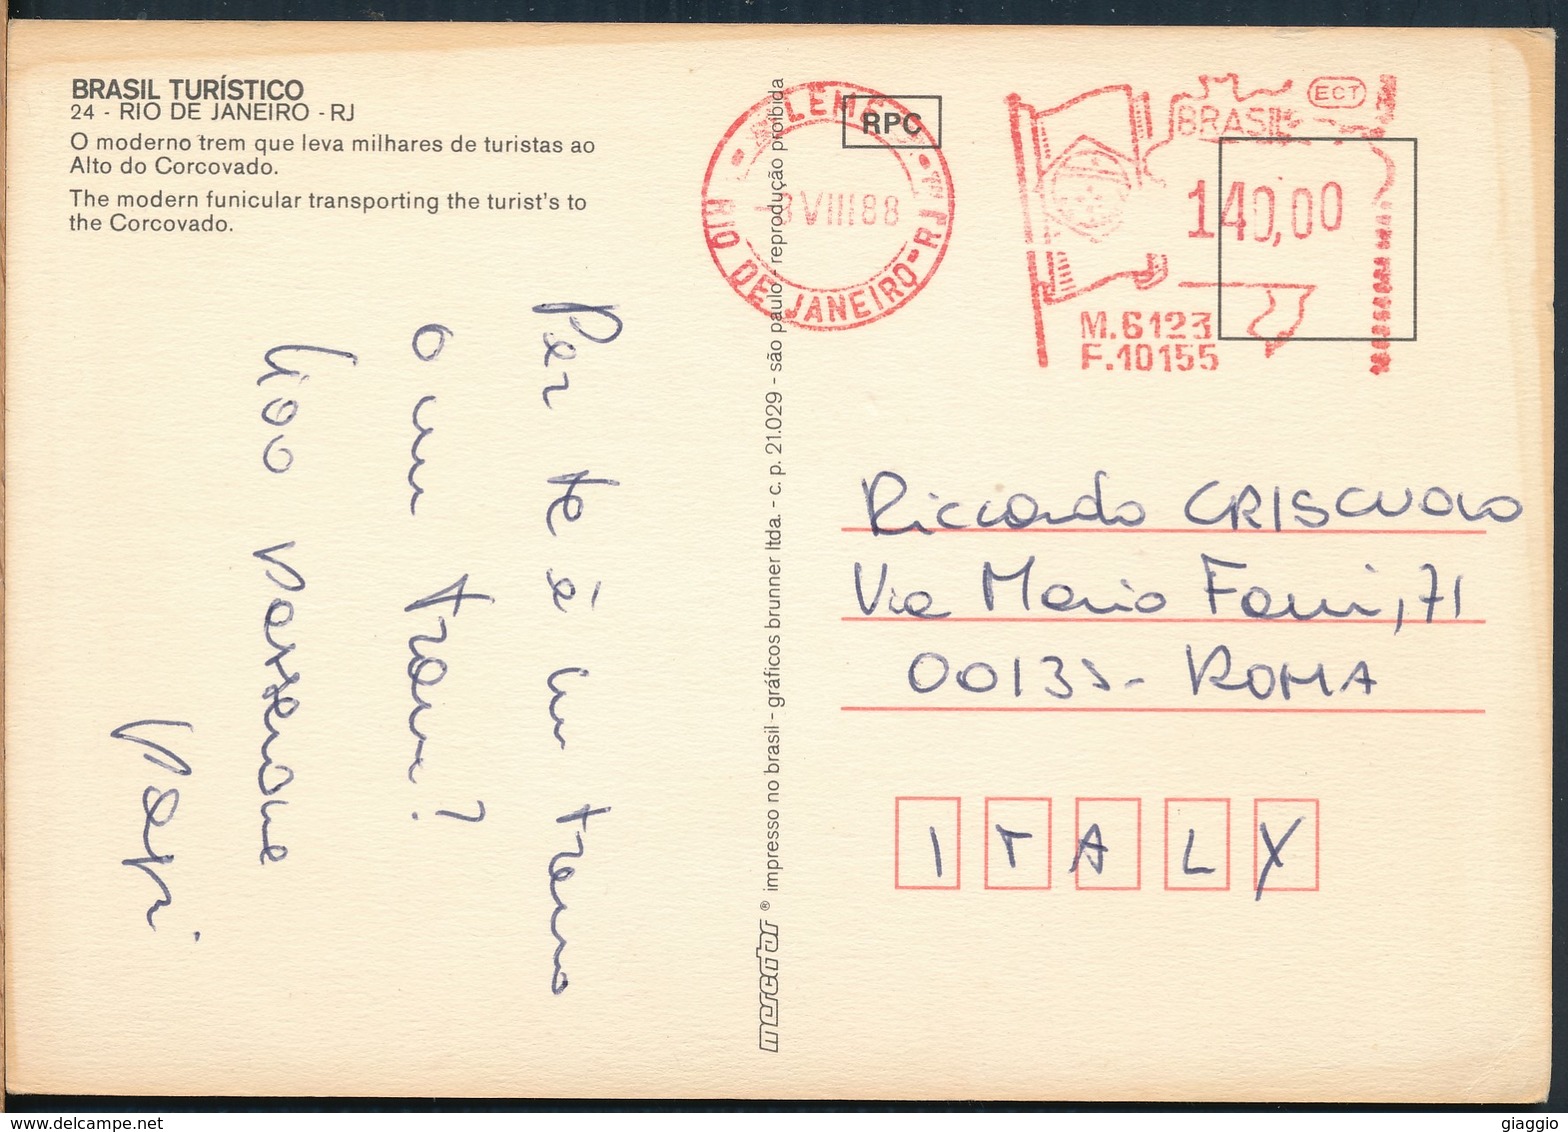 BRASIL TURÍSTICO
24 - RIO DE JANEIRO - RJ
O moderno trem que leva milhares de turistas ao
Alto do Corcovado.
The modern funicular transporting the turist's to
the Corcovado.
Per te è un treno
o un tram?
Papi
mercator ® impresso no brasil - gráficos brunner ltda. - c. p. 21.029 - são paulo - reprodução proibida
RPC
RIO DE JANEIRO - RJ
8 VIII 88
BRASIL
ECT
140,00
M.6123
F.10155
Riccardo CRISCUOLO
Via Mario Fani, 71
00135 - ROMA
I T A L Y
giaggio